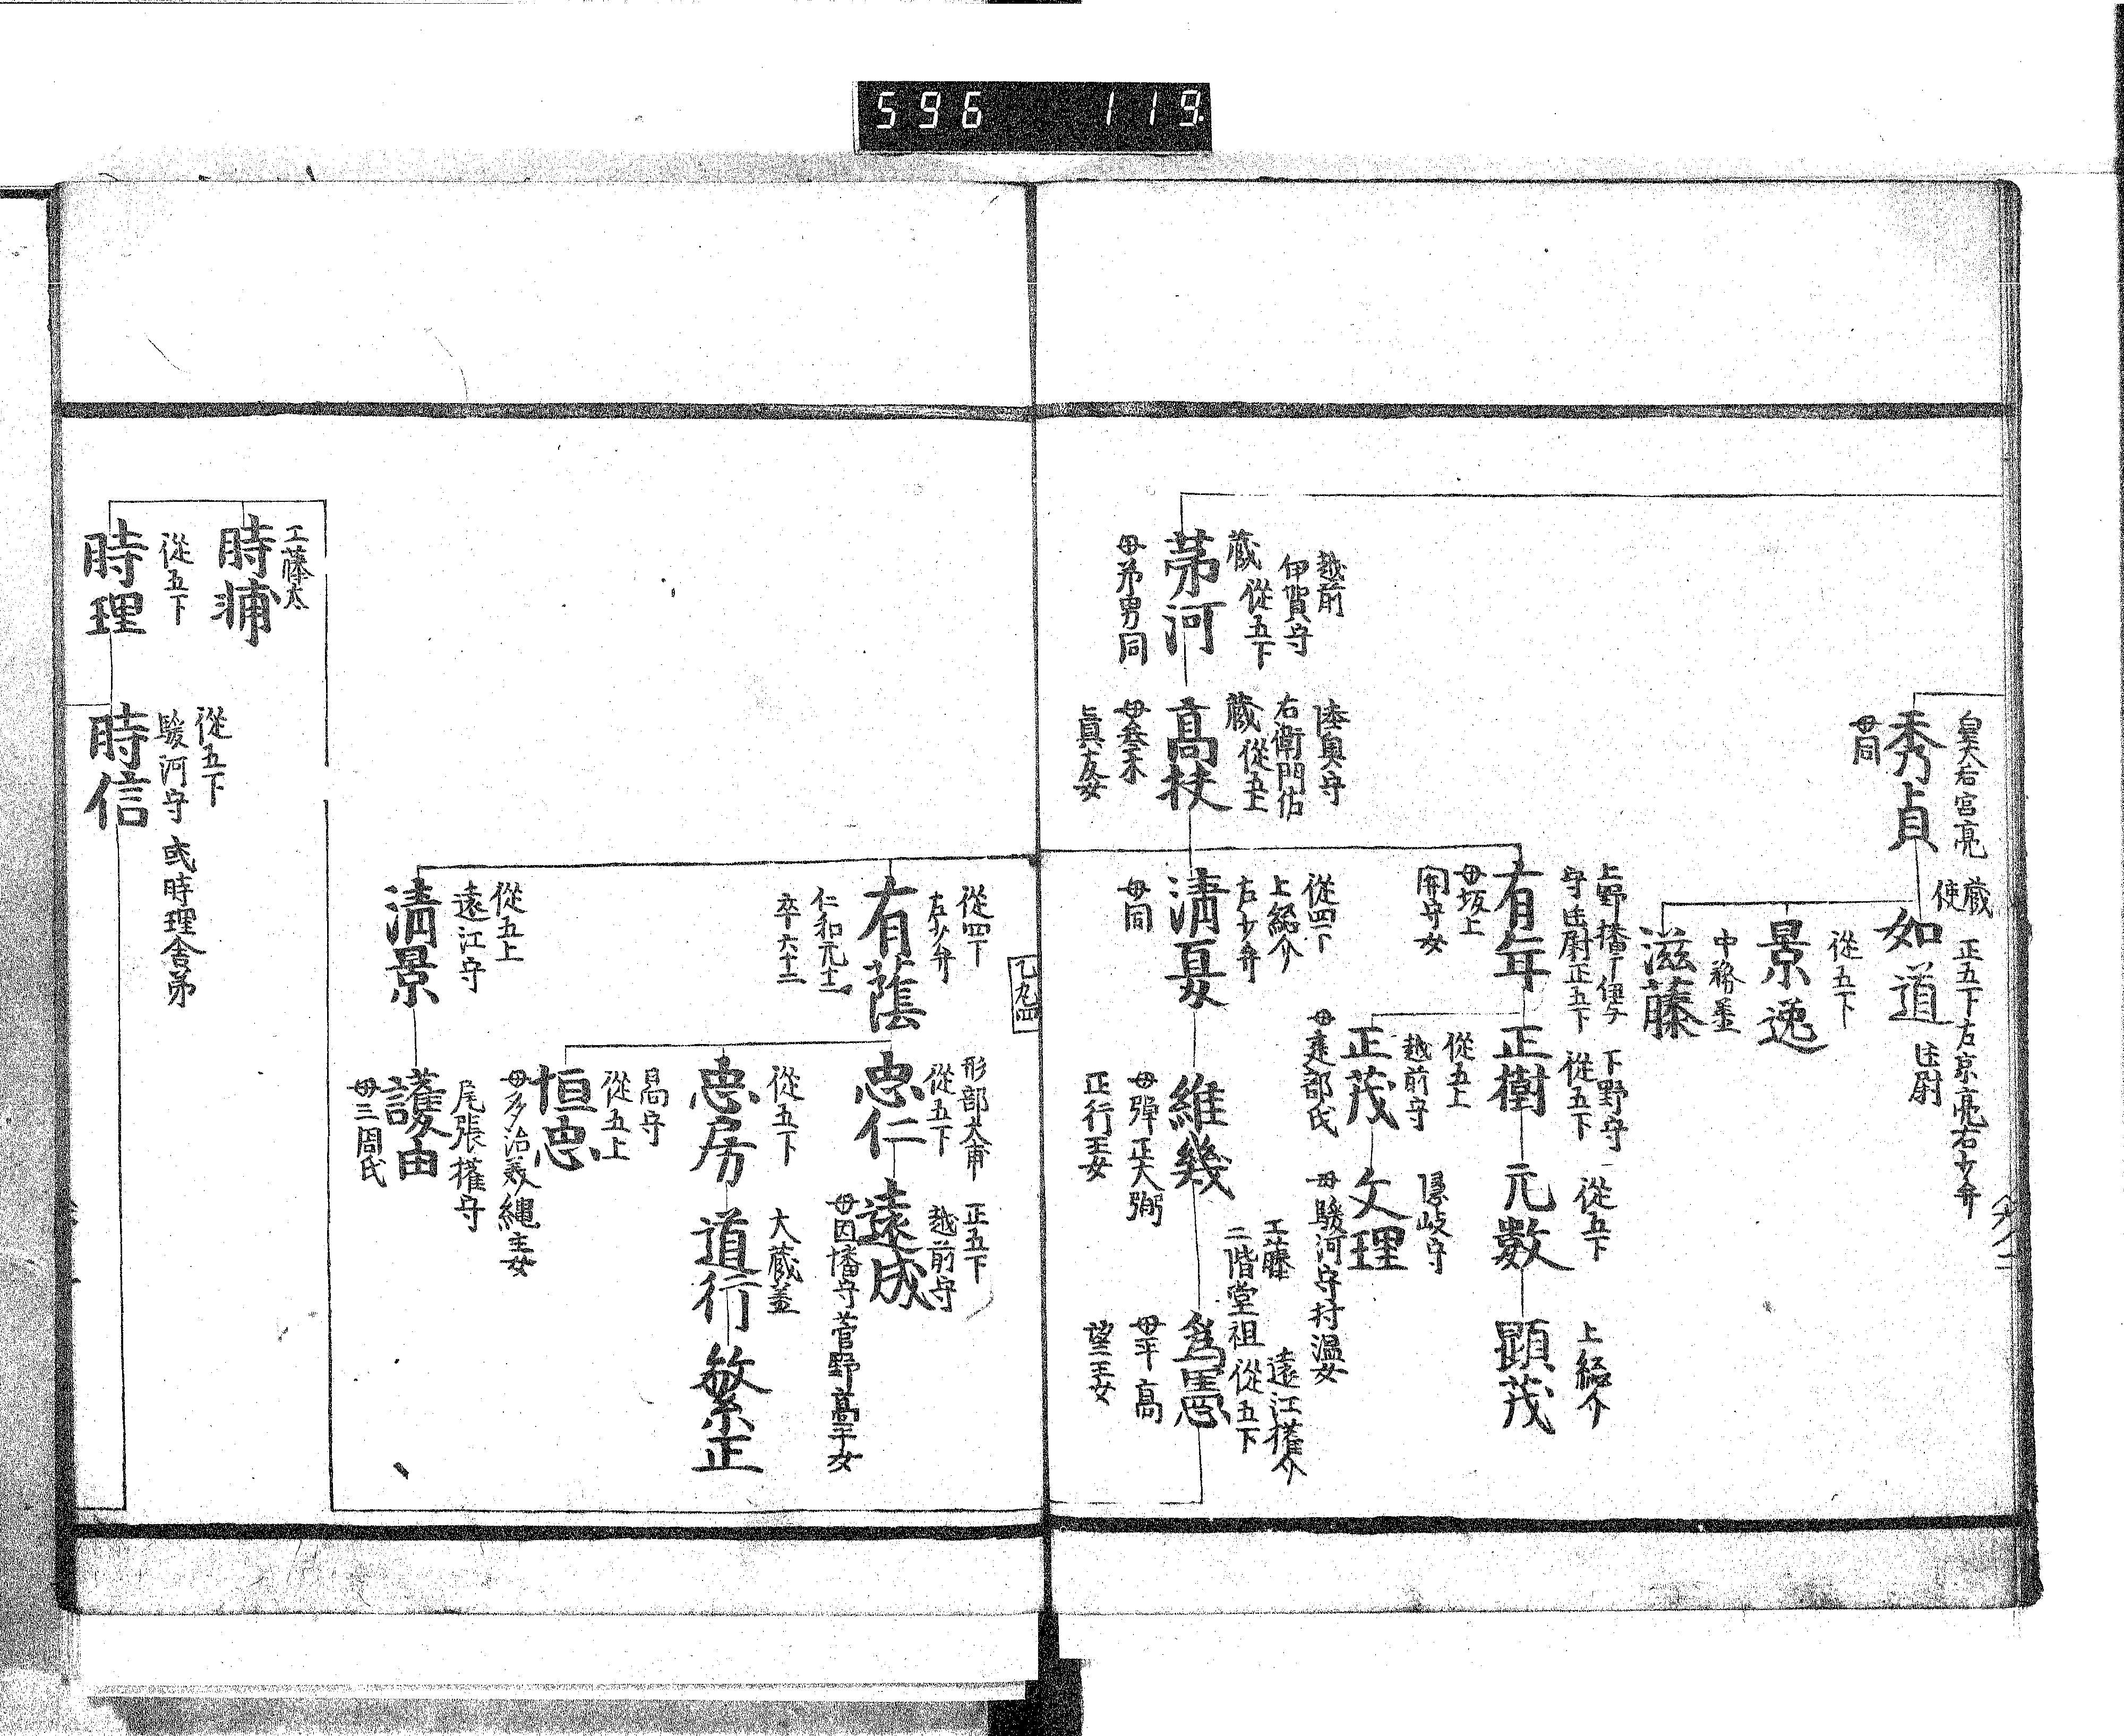 596 119.
皇太后宮亮
秀貞
母同
蔵
使
正五下左京亮右少弁
如道
従五下
景逸
中務
滋藤
上野
守 正五下
有年
母坂上
女
下野守
従五下
正樹
従五下
元數
上総介
顕茂
従五上
越前守
正茂
母建部氏
隠岐守
文理
母駿河守村温女
越前
伊賀守
蔵 従五下
茅河
母弟男同
陸奥守
右衛門佐
蔵 従五上
高扶
真友女
従四下
上総介
右少弁
清夏
母同
維幾
母弾正大弼
正行王女
工藤
二階堂祖 従五下
遠江権介
為憲
母平高
望王女
乙九四
従四下
右少弁
有蔭
仁和元
卒六十二
形部大甫
従五下
忠仁
正五下
越前守
遠成
母因幡守菅野高平女
従五下
忠房
大蔵
道行
繁正
従五上
恒忠
母多治美縄主女
従五上
遠江守
清景
尾張権守
護由
母三周氏
工藤太
従五下
時理
従五下
駿河守 或時理舎弟
時信